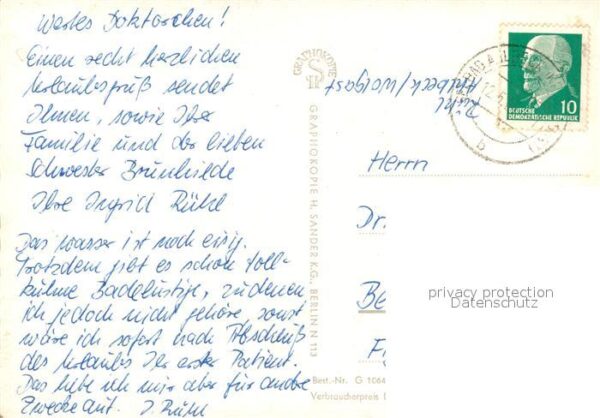 Wertes Doktorchen!
Einen recht herzlichen
Urlaubsgruß sendet
Ihnen, sowie Ihrer
Familie und der lieben
Schwester Brunhilde
Ihre Ingrid Rühl
Das Wasser ist noch eisig.
Trotzdem gibt es schon toll-
kühne Badelustige, zu denen
ich jedoch nicht gehöre, sonst
wäre ich sofort nach Abschluß
des Urlaubs Ihr erster Patient.
Das hebe ich mir aber für andre
Zwecke auf. I. Rühl
GRAPHOKOPIE
GRAPHOKOPIE H. SANDER K.G., BERLIN N 113
Rühl
Ahlbeck/Wolgast
10
DEUTSCHE
DEMOKRATISCHE REPUBLIK
b
Herrn
Dr.
Be
privacy protection
Datenschutz
F
Best.-Nr. G 1064
Verbraucherpreis